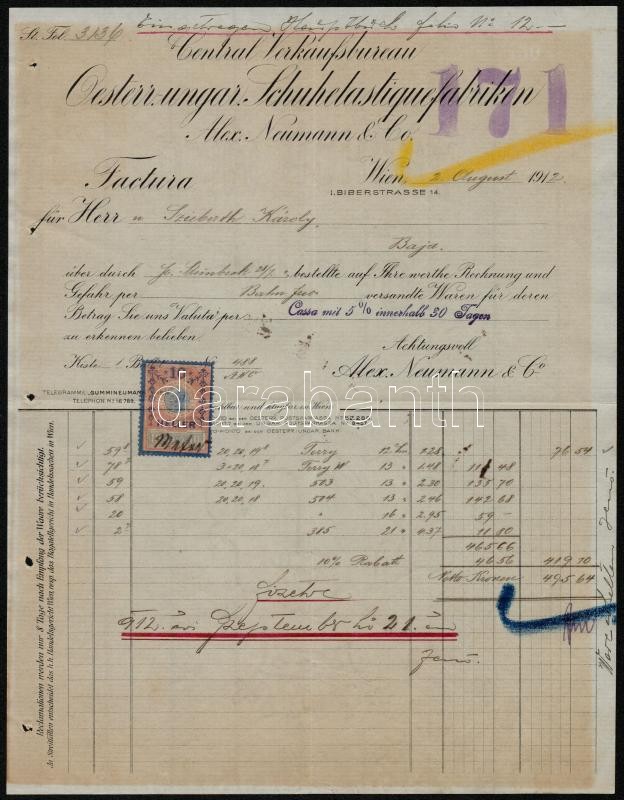 St. Fol. 3136 Eingetragen Hauptbuch folio No 12.—
Central Verkaufsbureau
Oesterr.-ungar. Schuhelastiquefabriken
171
Alex. Neumann & Co.
Factura
Wien, 2. August 1912.
I. BIBERSTRASSE 14.
für Herr n Károly
Baja.
über durch bestellte auf Ihre werthe Rechnung und
Gefahr per Bahn versandte Waren für deren
Betrag Sie uns Valuta per Cassa mit 5% innerhalb 30 Tagen
zu erkennen belieben.
Achtungsvoll
Kiste 1 488
Alex. Neumann & Co
TELEGRAMME „GUMMINEUMANN
TELEPHON No
zahlbar und klagbar in Wien.
OESTERR. UNGAR. BANK
darabanth
59 20, 20, 19 Terry 12 1.25 76 54
78 3-20, 18 Terry 13 1.48 111 48
59 20, 20, 19. 503 13 2.30 135 70
58 20, 20, 18 504 13 2.46 142.68
20 " 16 2.95 59 —
2 315 21 4.37 11.80
465 66
10% Rabat 46.56 419.10
Netto Kronen 495.64
912. évi September hó 21. én
Jenő.
Reclamationen werden nur 8 Tage nach Empfang der Waare berücksichtigt.
In Streitfällen entscheidet das k. k. Handelsgericht Wien resp. das Bagatellgericht in Handelssachen in Wien.